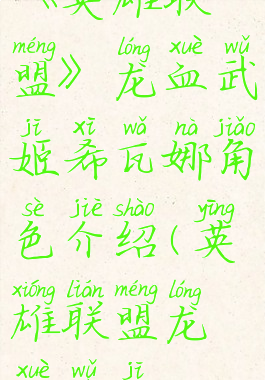 《英雄联
méng lóng xuè wǔ
盟》 龙血武
jī xī wǎ nà jiǎo
姬希瓦娜角
sè jiè shào yīng
色介绍(英
xióng lián méng lóng
雄联盟龙
xuè wǔ jī